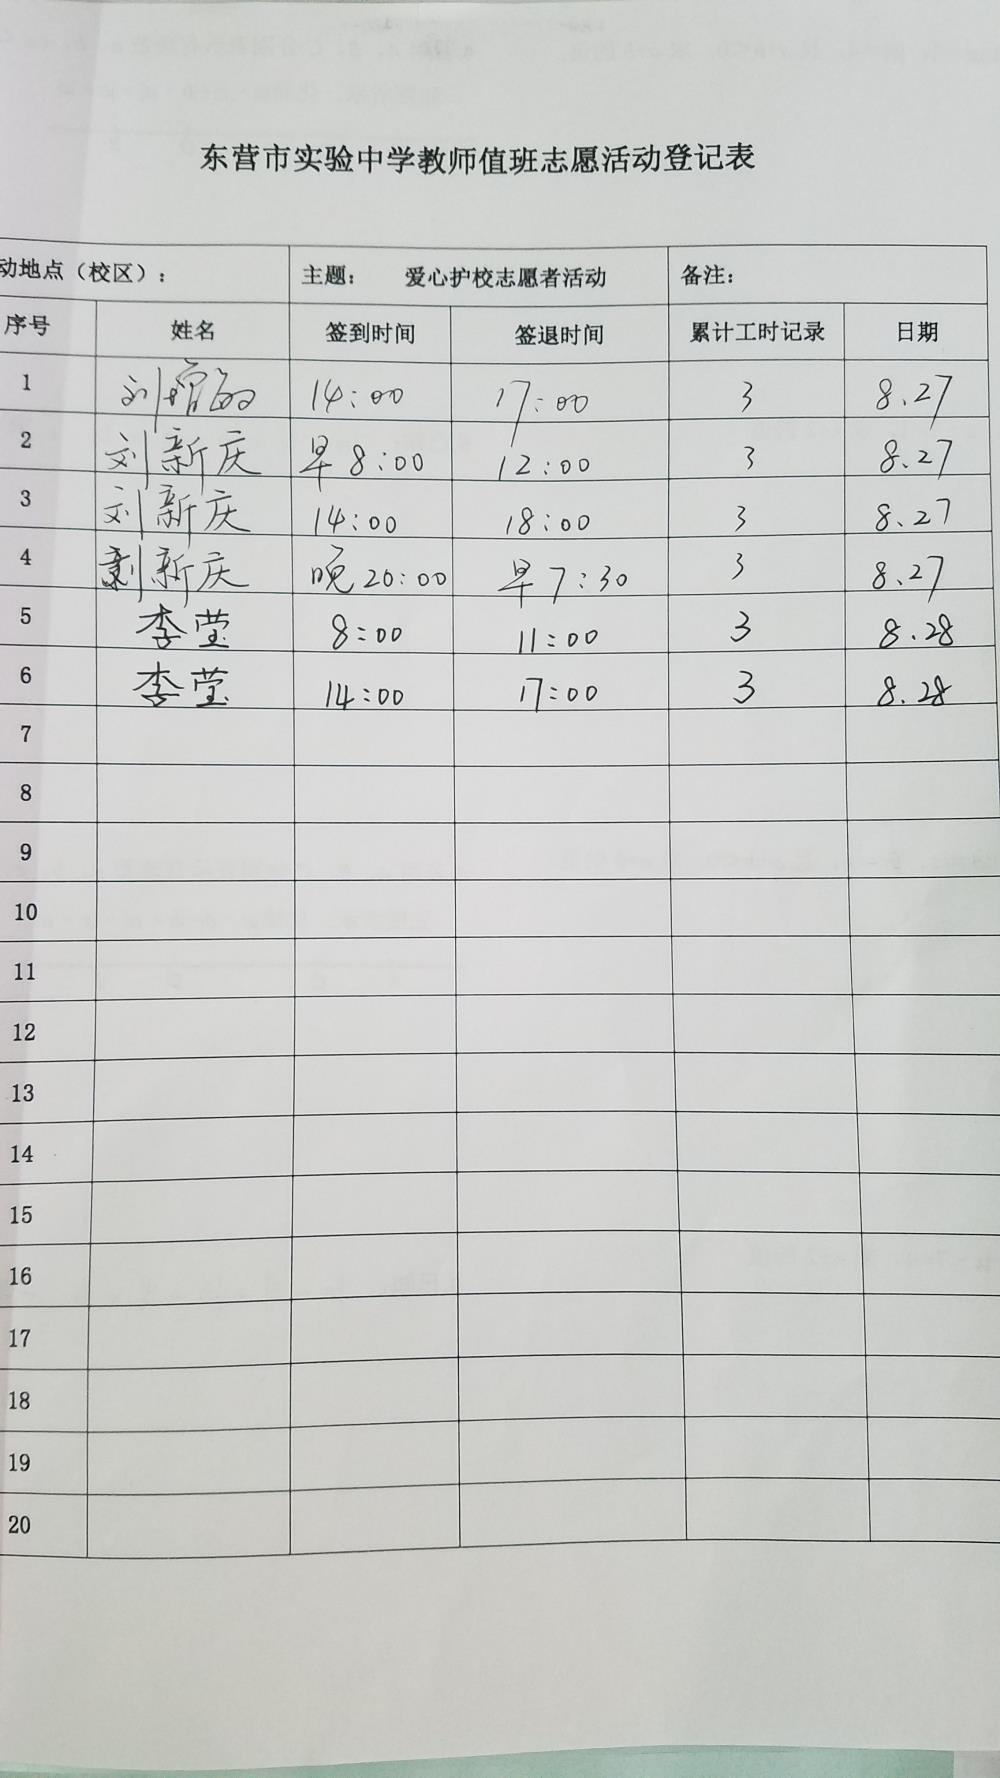 东营市实验中学教师值班志愿活动登记表
动地点（校区）： 主题： 爱心护校志愿者活动 备注：
序号 姓名 签到时间 签退时间 累计工时记录 日期
1 刘 14:00 17:00 3 8.27
2 刘新庆 早8:00 12:00 3 8.27
3 刘新庆 14:00 18:00 3 8.27
4 刘新庆 晚20:00 早7:30 3 8.27
5 李莹 8:00 11:00 3 8.28
6 李莹 14:00 17:00 3 8.28
7
8
9
10
11
12
13
14
15
16
17
18
19
20